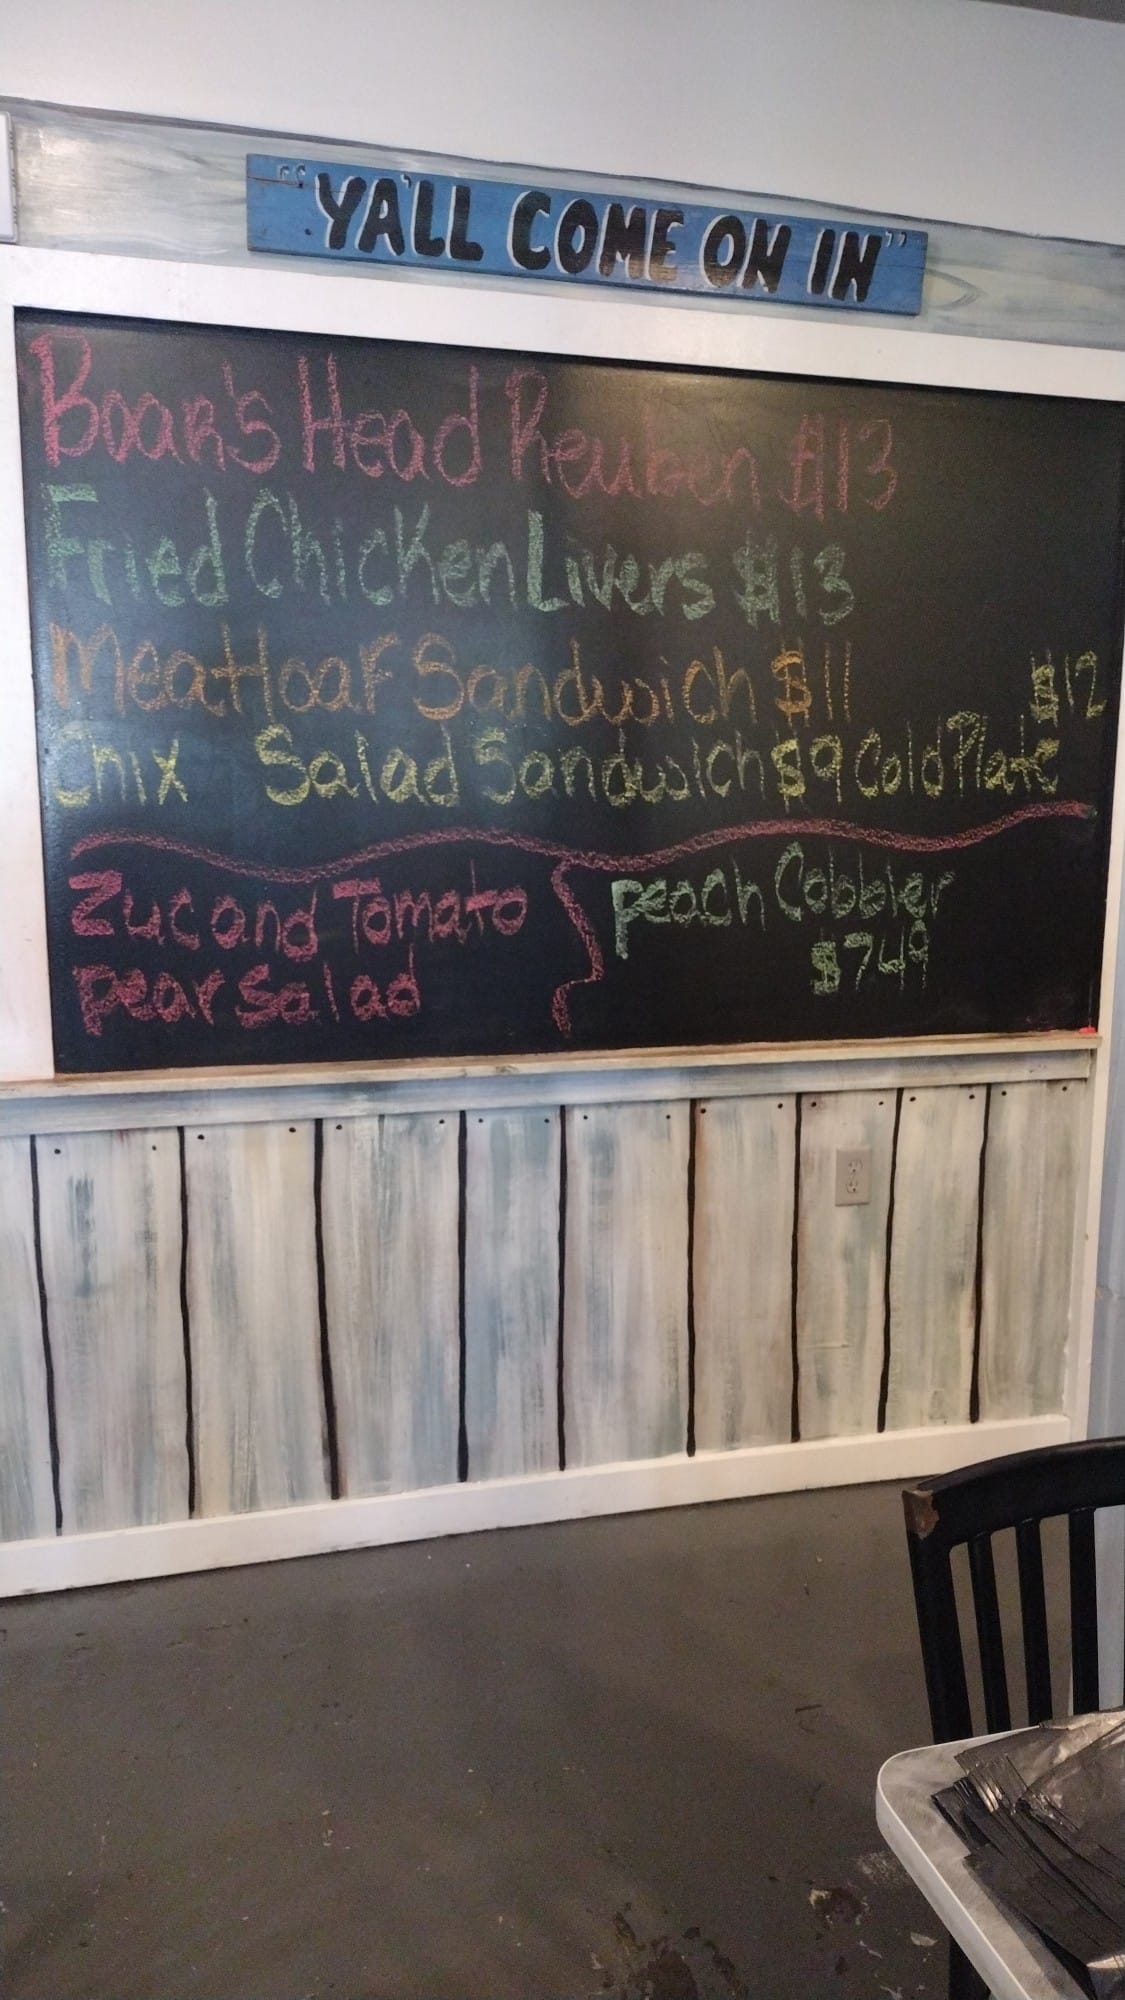 "YA'LL COME ON IN"
Boar's Head Reuben $13
Fried Chicken Livers $13
Meatloaf Sandwich $11
$12
Chix Salad Sandwich $9 Cold Plate
Zuc and Tomato
pear Salad
peach Cobbler
$749